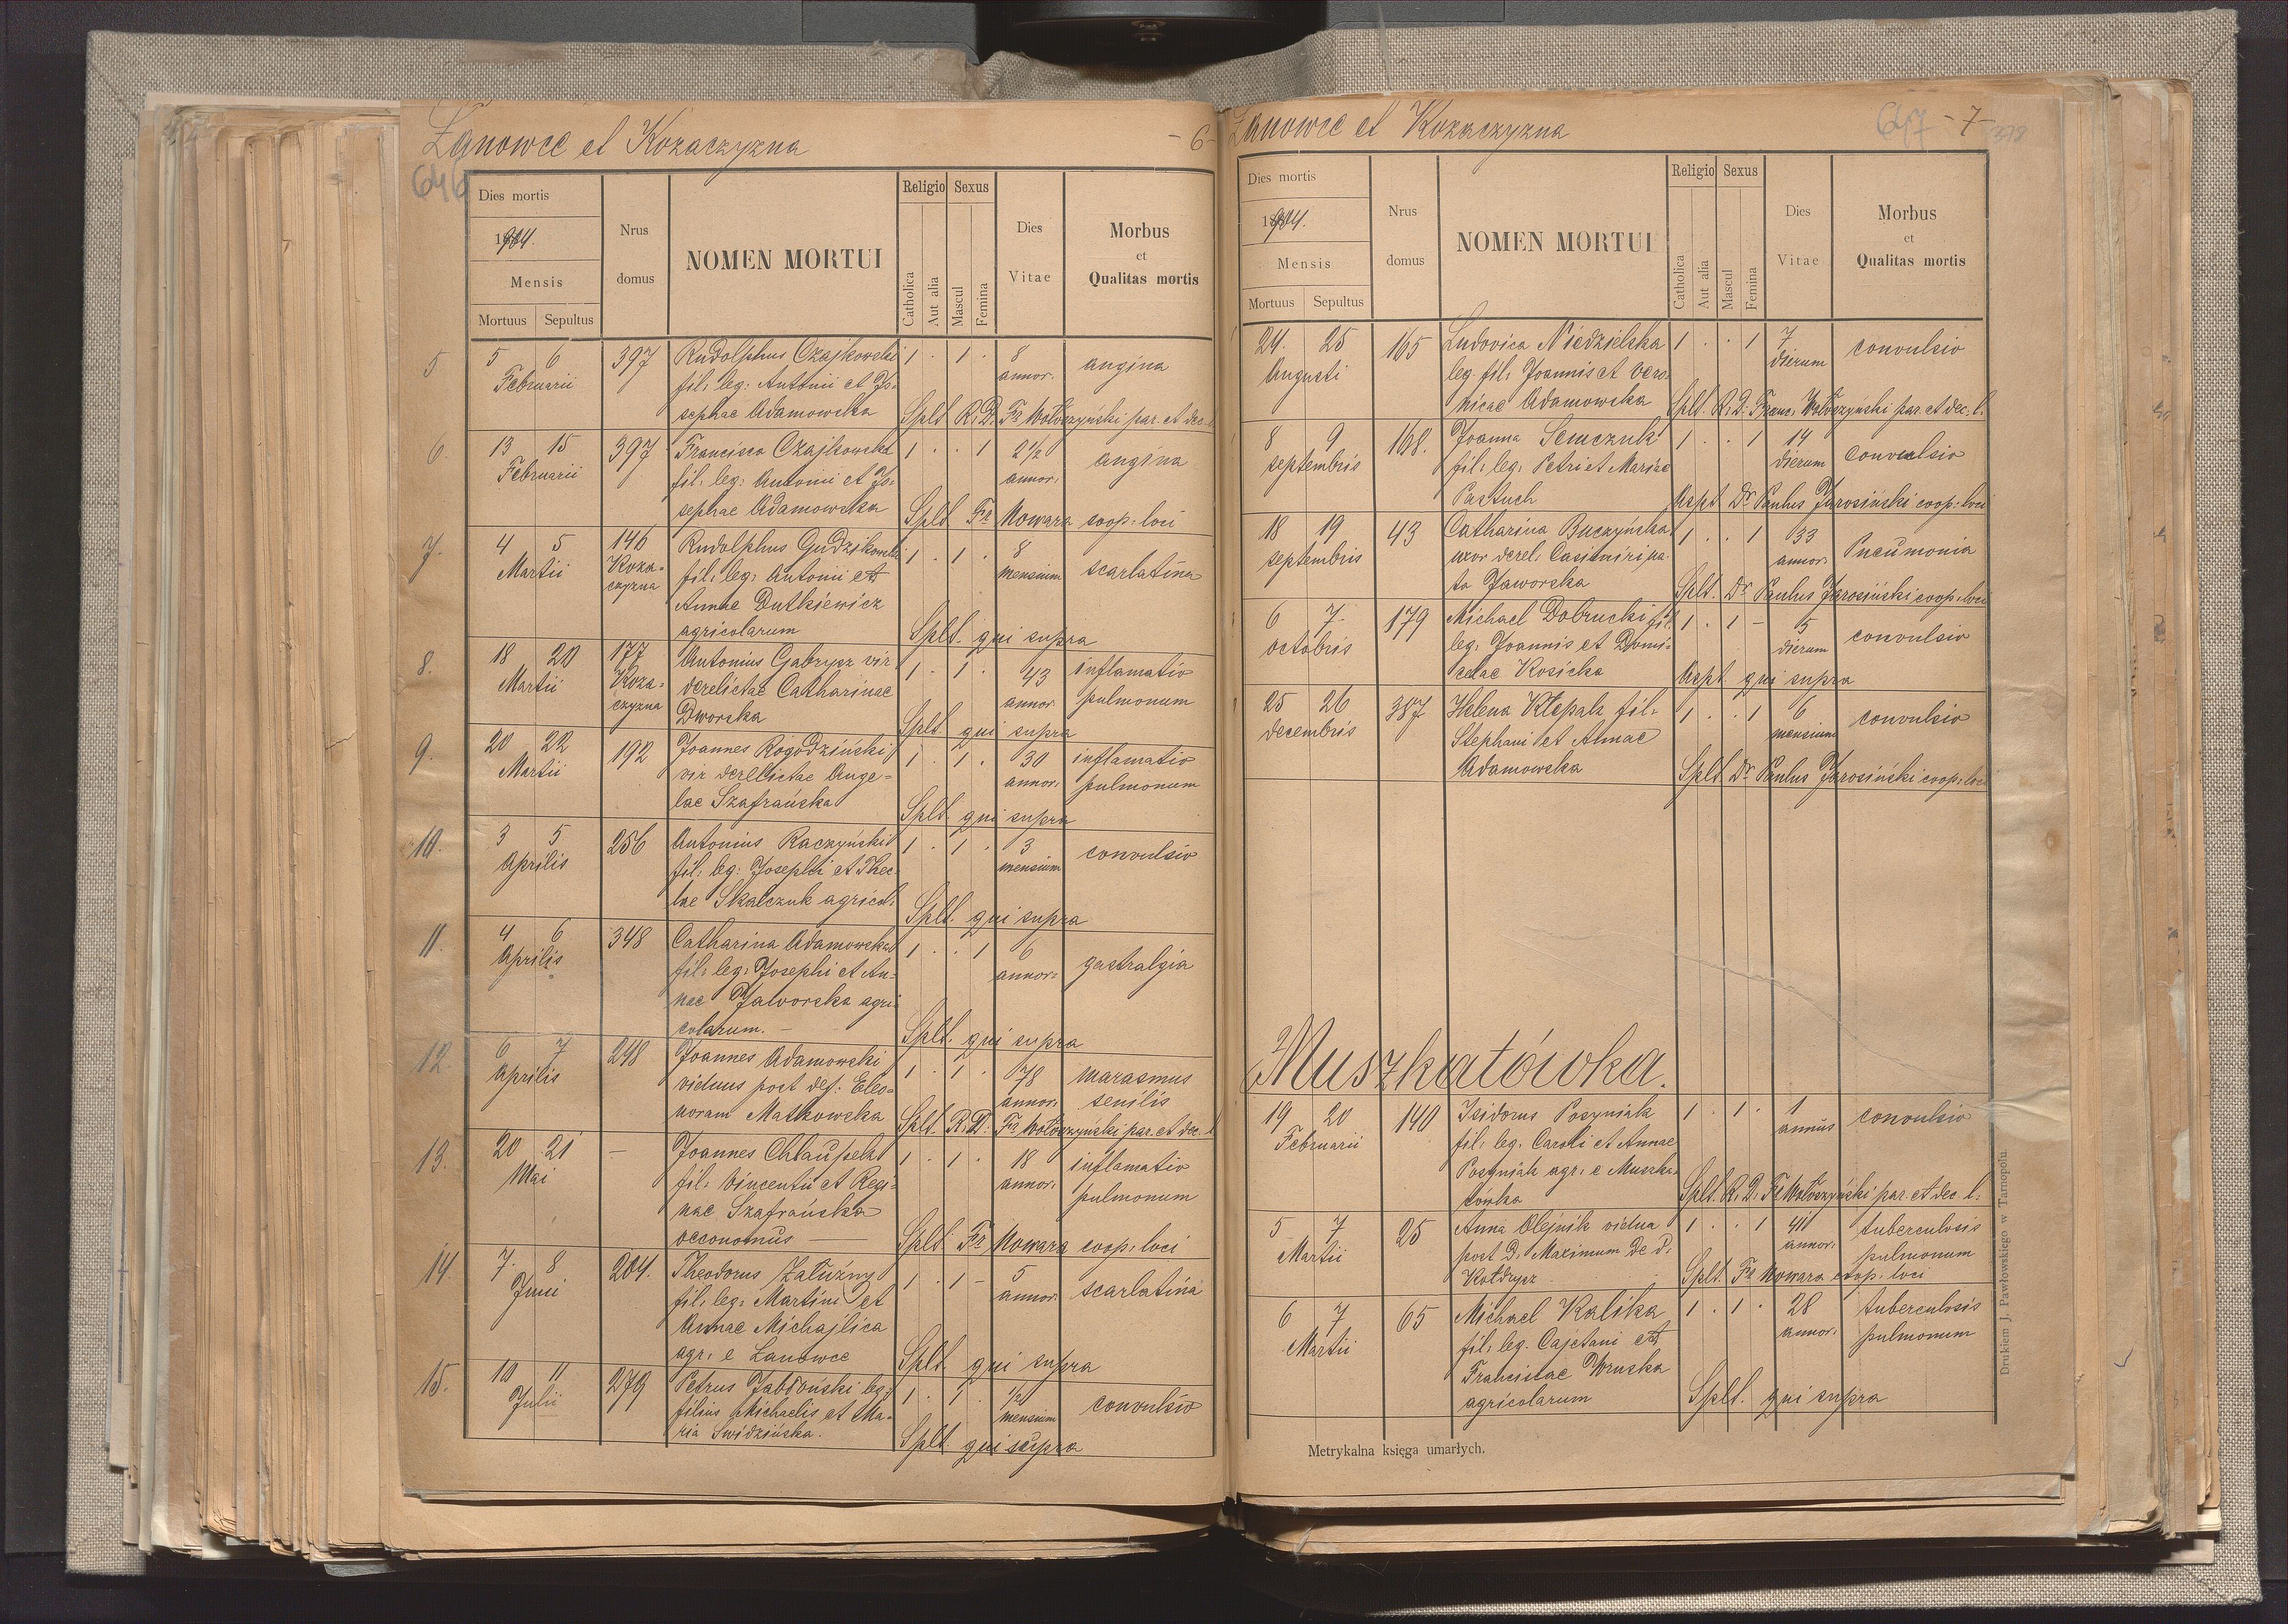 Łanowce et Kozaczyzna
- 6 -
646
Dies mortis
1904.
Mensis
Mortuus Sepultus
Nrus domus
NOMEN MORTUI
Religio Sexus
Catholica
Aut alia
Mascul
Femina
Dies Vitae
Morbus
et
Qualitas mortis
5 5 6 397 Rudolphus Czajkowski 1 · 1 · 8 angina
Februarii fil. leg: Antonii et Jo- annor.
sephae Adamowska Splt R. D. Fr Wołoszyński par. et dec. l
6. 13 15 397 Francisca Czajkowska 1 · · 1 2 1/2 angina
Februarii fil. leg: Antonii et Jo- annor.
sephae Adamowska Splt Fr Nowara coop: loci
7. 4 5 146 Rudolphus Gudzikowski 1 · 1 · 8 scarlatina
Martii Koza- fil. leg: Antonii et mensium
czyzna Annae Dutkiewicz
agricolarum Splt. qui supra
8. 18 20 177 Antonius Gabrysz vir 1 · 1 · 43 inflamatio
Martii Koza- derelictae Catharinae annor pulmonum
czyzna Dworska Splt qui supra
9. 20 22 192 Joannes Rogodziński 1 · 1 · 30 inflamatio
Martii vir derelictae Ange- annor. pulmonum
lae Szafrańska Splt. qui supra
10. 3 5 256 Antonius Raczyński 1 · 1 · 3 convulsio
Aprilis fil. leg: Josephi et Thec- mensium
lae Skalczuk agricol. Splt. qui supra
11. 4 6 348 Catharina Adamowska 1 · · 1 6 gastralgia
Aprilis fil. leg. Josephi et An- annor.
nae Jaworska agri
colarum. — Splt. qui supra
12. 6 7 248 Joannes Adamowski 1 · 1 · 78 marasmus
Aprilis viduus post def: Eleo- annor. senilis
noram Matkowska Splt. R. D. Fr Wołoszyński par. et dec. l
13. 20 21 — Joannes Chlaupek 1 · 1 · 18 inflamatio
Mai fil. Vincentii et Regi- annor. pulmonum
nae Szafrańska
oeconomus — Splt Fr Nowara coop: loci
14. 7. 8 204. Theodorus Załużny 1 · 1 - 5 scarlatina
Juni fil. leg. Martini et annor.
Annae Michajlica
agr. e Łanowce Splt. qui supra
15. 10 11 279 Petrus Jabłoński leg. 1 · 1 · 1/2 convulsio
Julii filius Michaelis et Ma- mensium
ria Swidzińska. Splt. qui supra
Łanowce et Kozaczyzna
647 - 7 -
Dies mortis
1904.
Mensis
Mortuus Sepultus
Nrus domus
NOMEN MORTUI
Religio Sexus
Catholica
Aut alia
Mascul
Femina
Dies Vitae
Morbus
et
Qualitas mortis
24. 25 165 Ludovica Niedzielska 1 · · 1 7 convulsio
Augusti leg. fil. Joannis et Vero- dierum
nicae Adamowska Splt. R. D. Franc. Wołoszyński par. et dec. l.
8 9 168. Joanna Semczuk 1 · · 1 14 convulsio
septembris fil. leg. Petri et Mariae dierum
Pastuch Aspt Dr Paulus Jarosiński coop: loci
18 19 43 Catharina Buczyńska 1 · · 1 33 Pneumonia
septembris uxor derel. Casimiri na- annor.
ta Jaworska Splt. Dr Paulus Jarosiński coop: loci
6 7. 179 Michael Dobrucki fil. 1 · 1 - 5 convulsio
octobris leg. Joannis et Domi- dierum
celae Kosicka Aspt qui supra
25 26 387 Helena Kłepak fil. 1 · · 1 6 convulsio
decembris Stephani et Annae mensium
Adamowska Splt Dr Paulus Jarosiński coop: loci
Muszkatówka.
19 20 140 Isidorus Posyniak 1 · 1 · 1 convulsio
Februarii fil. leg. Caroli et Annae annus
Posyniak agr. e Muszka-
tówka Splt. R. D. Fr Wołoszyński par. et dec l.
5 7 25 Anna Olejnik vidua 1 · · 1 40 tuberculosis
Martii post D. Maximum de d. annor. pulmonum
Kołdrysz Splt. Fr Nowara coop. loci
6 7 65 Michael Kalika 1 · 1 · 28 tuberculosis
Martii fil. leg. Cajetani et annor. pulmonum
Franciscae Wruska
agricolarum Splt. qui supra
Metrykalna księga umarłych.
Drukiem J. Pawłowskiego w Tarnopolu.